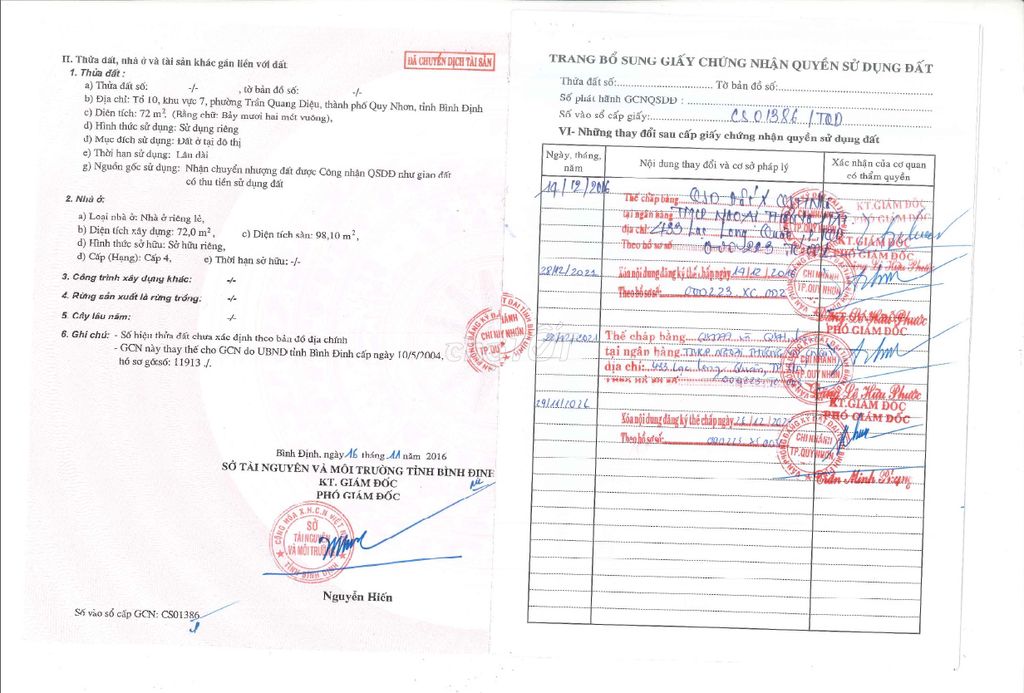 II. Thửa đất, nhà ở và tài sản khác gắn liền với đất
ĐÃ CHUYỂN DỊCH TÀI SẢN
1. Thửa đất :
a) Thửa đất số: -/- , tờ bản đồ số: -/-
b) Địa chỉ: Tổ 10, khu vực 7, phường Trần Quang Diệu, thành phố Quy Nhơn, tỉnh Bình Định
c) Diện tích: 72 m². (Bằng chữ: Bảy mươi hai mét vuông),
d) Hình thức sử dụng: Sử dụng riêng
đ) Mục đích sử dụng: Đất ở tại đô thị
e) Thời hạn sử dụng: Lâu dài
g) Nguồn gốc sử dụng: Nhận chuyển nhượng đất được Công nhận QSDĐ như giao đất
có thu tiền sử dụng đất
2. Nhà ở:
a) Loại nhà ở: Nhà ở riêng lẻ,
b) Diện tích xây dựng: 72,0 m², c) Diện tích sàn: 98,10 m²,
d) Hình thức sở hữu: Sở hữu riêng,
đ) Cấp (Hạng): Cấp 4, e) Thời hạn sở hữu: -/-
3. Công trình xây dựng khác: -/-
4. Rừng sản xuất là rừng trồng: -/-
5. Cây lâu năm: -/-
6. Ghi chú: - Số hiệu thửa đất chưa xác định theo bản đồ địa chính
- GCN này thay thế cho GCN do UBND tỉnh Bình Định cấp ngày 10/5/2004,
hồ sơ gốcsố: 11913 ./.
Bình Định, ngày 16 tháng 11 năm 2016
SỞ TÀI NGUYÊN VÀ MÔI TRƯỜNG TỈNH BÌNH ĐỊNH
KT. GIÁM ĐỐC
PHÓ GIÁM ĐỐC
CỘNG HÒA X.H.C.N VIỆT NAM
SỞ
TÀI NGUYÊN
VÀ MÔI TRƯỜNG
TỈNH BÌNH ĐỊNH
Nguyễn Hiến
Số vào sổ cấp GCN: CS01386
TRANG BỔ SUNG GIẤY CHỨNG NHẬN QUYỀN SỬ DỤNG ĐẤT
Thửa đất số: Tờ bản đồ số:
Số phát hành GCNQSDĐ :
Số vào sổ cấp giấy: CS01386 /TQD
VI- Những thay đổi sau cấp giấy chứng nhận quyền sử dụng đất
Ngày, tháng, năm
Nội dung thay đổi và cơ sở pháp lý
Xác nhận của cơ quan có thẩm quyền
19/12/2016
Thế chấp bằng
tại ngân hàng TMCP NGOẠI THƯƠNG
địa chỉ: 433 Lạc Long Quân
Theo hồ sơ số
KT.GIÁM ĐỐC
PHÓ GIÁM ĐỐC
28/12/2021
Xóa nội dung đăng ký thế chấp ngày 19/12/2016
Theo hồ sơ số: 000223.XC.002
CHI NHÁNH
TP.QUY NHƠN
PHÓ GIÁM ĐỐC
Thế chấp bằng
tại ngân hàng TMCP NGOẠI THƯƠNG
địa chỉ: 433 Lạc Long Quân
CHI NHÁNH
TP.QUY NHƠN
Lê Hữu Phước
KT.GIÁM ĐỐC
PHÓ GIÁM ĐỐC
Xóa nội dung đăng ký thế chấp ngày
Theo hồ sơ số:
CHI NHÁNH
TP.QUY NHƠN
Trần Minh